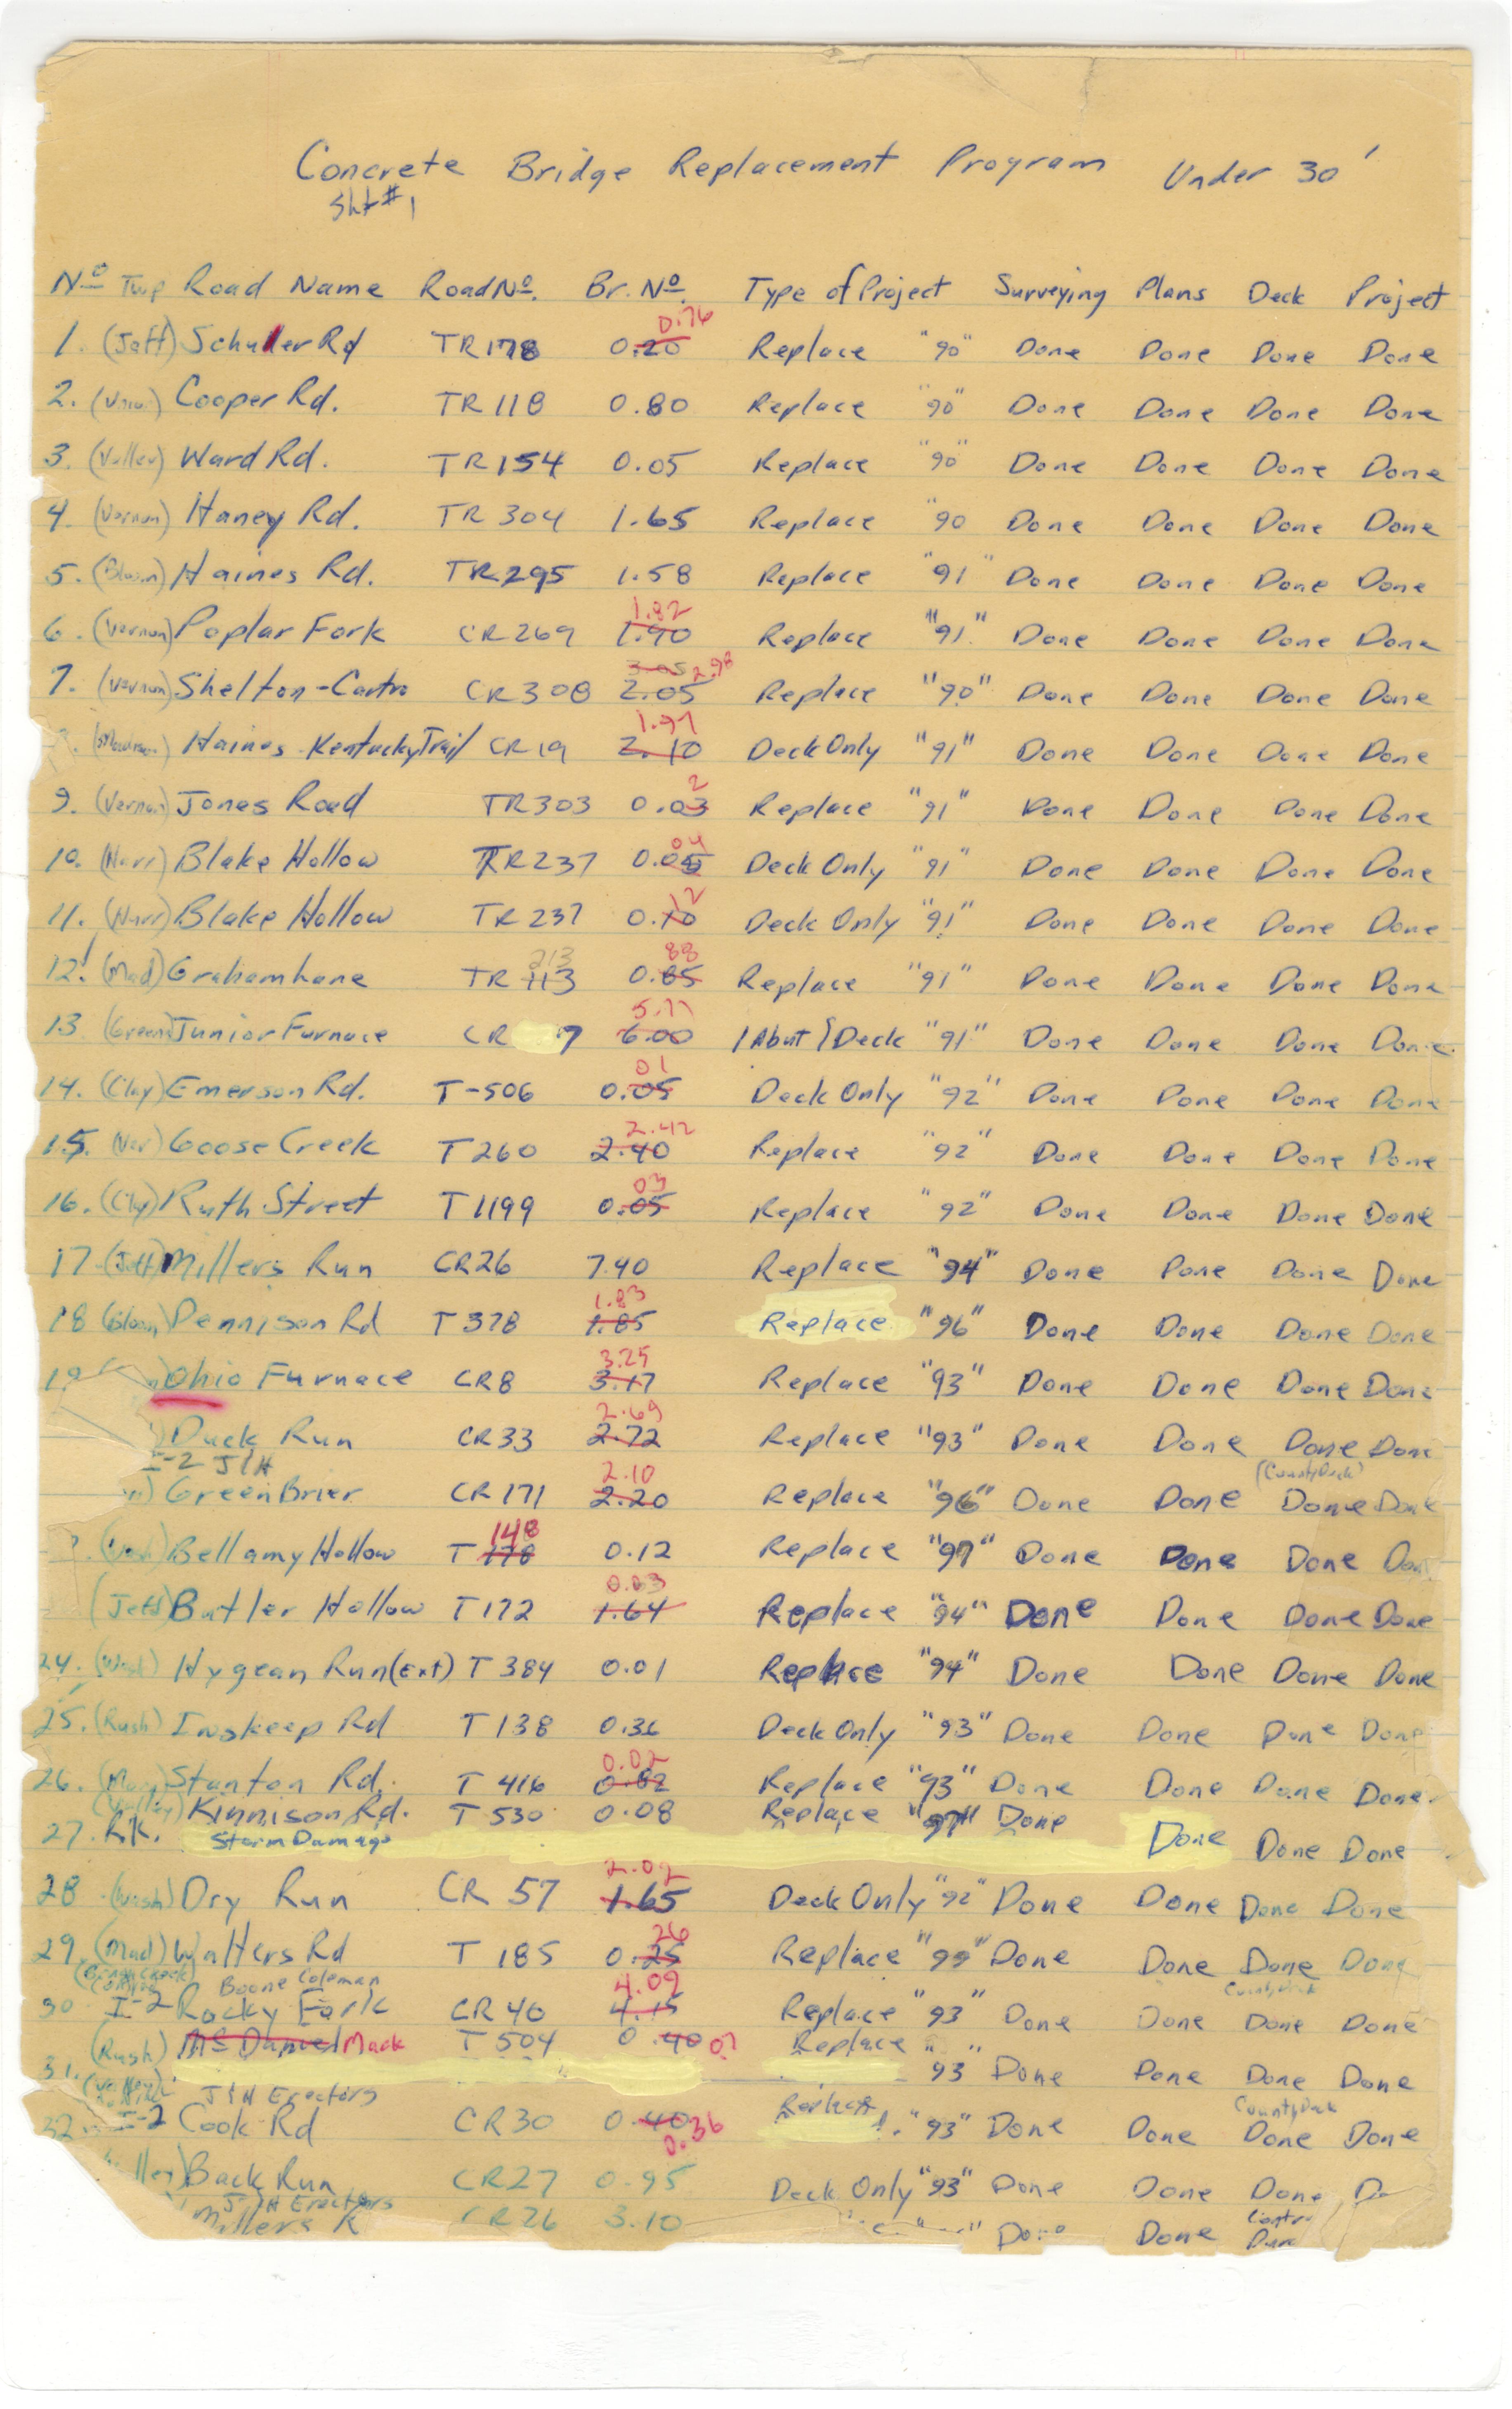 Concrete Bridge Replacement Program Under 30'
Sht #1
Nº Twp Road Name Road Nº. Br. Nº. Type of Project Surveying Plans Deck Project
0.76
1. (Jeff) Schuller Rd TR178 0.20 Replace "90" Done Done Done Done
2. Cooper Rd. TR118 0.80 Replace "90" Done Done Done Done
3. (Valley) Ward Rd. TR154 0.05 Replace "90" Done Done Done Done
4. (Vernon) Haney Rd. TR 304 1.65 Replace "90 Done Done Done Done
5. (Bloom) Haines Rd. TR295 1.58 Replace "91" Done Done Done Done
1.82
6. (Vernon) Poplar Fork CR269 1.90 Replace "91" Done Done Done Done
3.05 2.98
7. (Vernon) Shelton-Castro CR308 2.05 Replace "90" Done Done Done Done
1.97
Haines-Kentucky Trail CR19 2.10 Deck Only "91" Done Done Done Done
2
9. (Vernon) Jones Road TR303 0.03 Replace "91" Done Done Done Done
04
10. (Harr) Blake Hollow TR237 0.05 Deck Only "91" Done Done Done Done
12
11. (Harr) Blake Hollow TR237 0.10 Deck Only "91" Done Done Done Done
213 88
12. (Mad) Graham Lane TR 113 0.85 Replace "91" Done Done Done Done
5.77
13. (Green) Junior Furnace CR 7 6.00 1 Abut & Deck "91" Done Done Done Done
01
14. (Clay) Emerson Rd. T-506 0.05 Deck Only "92" Done Done Done Done
2.42
15. (Ver) Goose Creek T260 2.40 Replace "92" Done Done Done Done
03
16. (Cly) Ruth Street T1199 0.05 Replace "92" Done Done Done Done
17. (Jeff) Millers Run CR26 7.40 Replace "94" Done Done Done Done
1.83
18 (Bloom) Dennison Rd T378 1.85 Replace "96" Done Done Done Done
3.25
19 Ohio Furnace CR8 3.17 Replace "93" Done Done Done Done
2.69
Duck Run CR33 2.72 Replace "93" Done Done Done Done
I-2 J&H 2.10 (County Deck)
Green Brier CR171 2.20 Replace "96" Done Done Done Done
148
(Wash) Bellamy Hollow T 178 0.12 Replace "97" Done Done Done Done
0.03
(Jeff) Butler Hollow T172 1.64 Replace "94" Done Done Done Done
24. (Wash) Hygean Run (Ext) T 384 0.01 Replace "94" Done Done Done Done
25. (Rush) Inskeep Rd T 138 0.36 Deck Only "93" Done Done Done Done
0.02
26. Stanton Rd. T 416 0.82 Replace "93" Done Done Done Done
(Valley) Kinnison Rd. T 530 0.08 Replace "97" Done
27. RK. Storm Damage Done Done Done
2.02
28 (Wash) Dry Run CR 57 1.65 Deck Only "92" Done Done Done Done
26
29. (Mad) Walters Rd T 185 0.25 Replace "99" Done Done Done Done
Boone Coleman 4.09 County Deck
30 I-2 Rocky Fork CR 40 4.15 Replace "93" Done Done Done Done
(Rush) McDaniel Mack T 504 0.40 07 Replace "
31. 93" Done Done Done Done
(Valley) J&H Erectors Replace County Deck
32. I-2 Cook Rd CR30 0.40 "93" Done Done Done Done
0.36
Back Run CR27 0.95 Deck Only "93" Done Done Done
J&H Erectors
Millers R CR26 3.10 Done Done Done